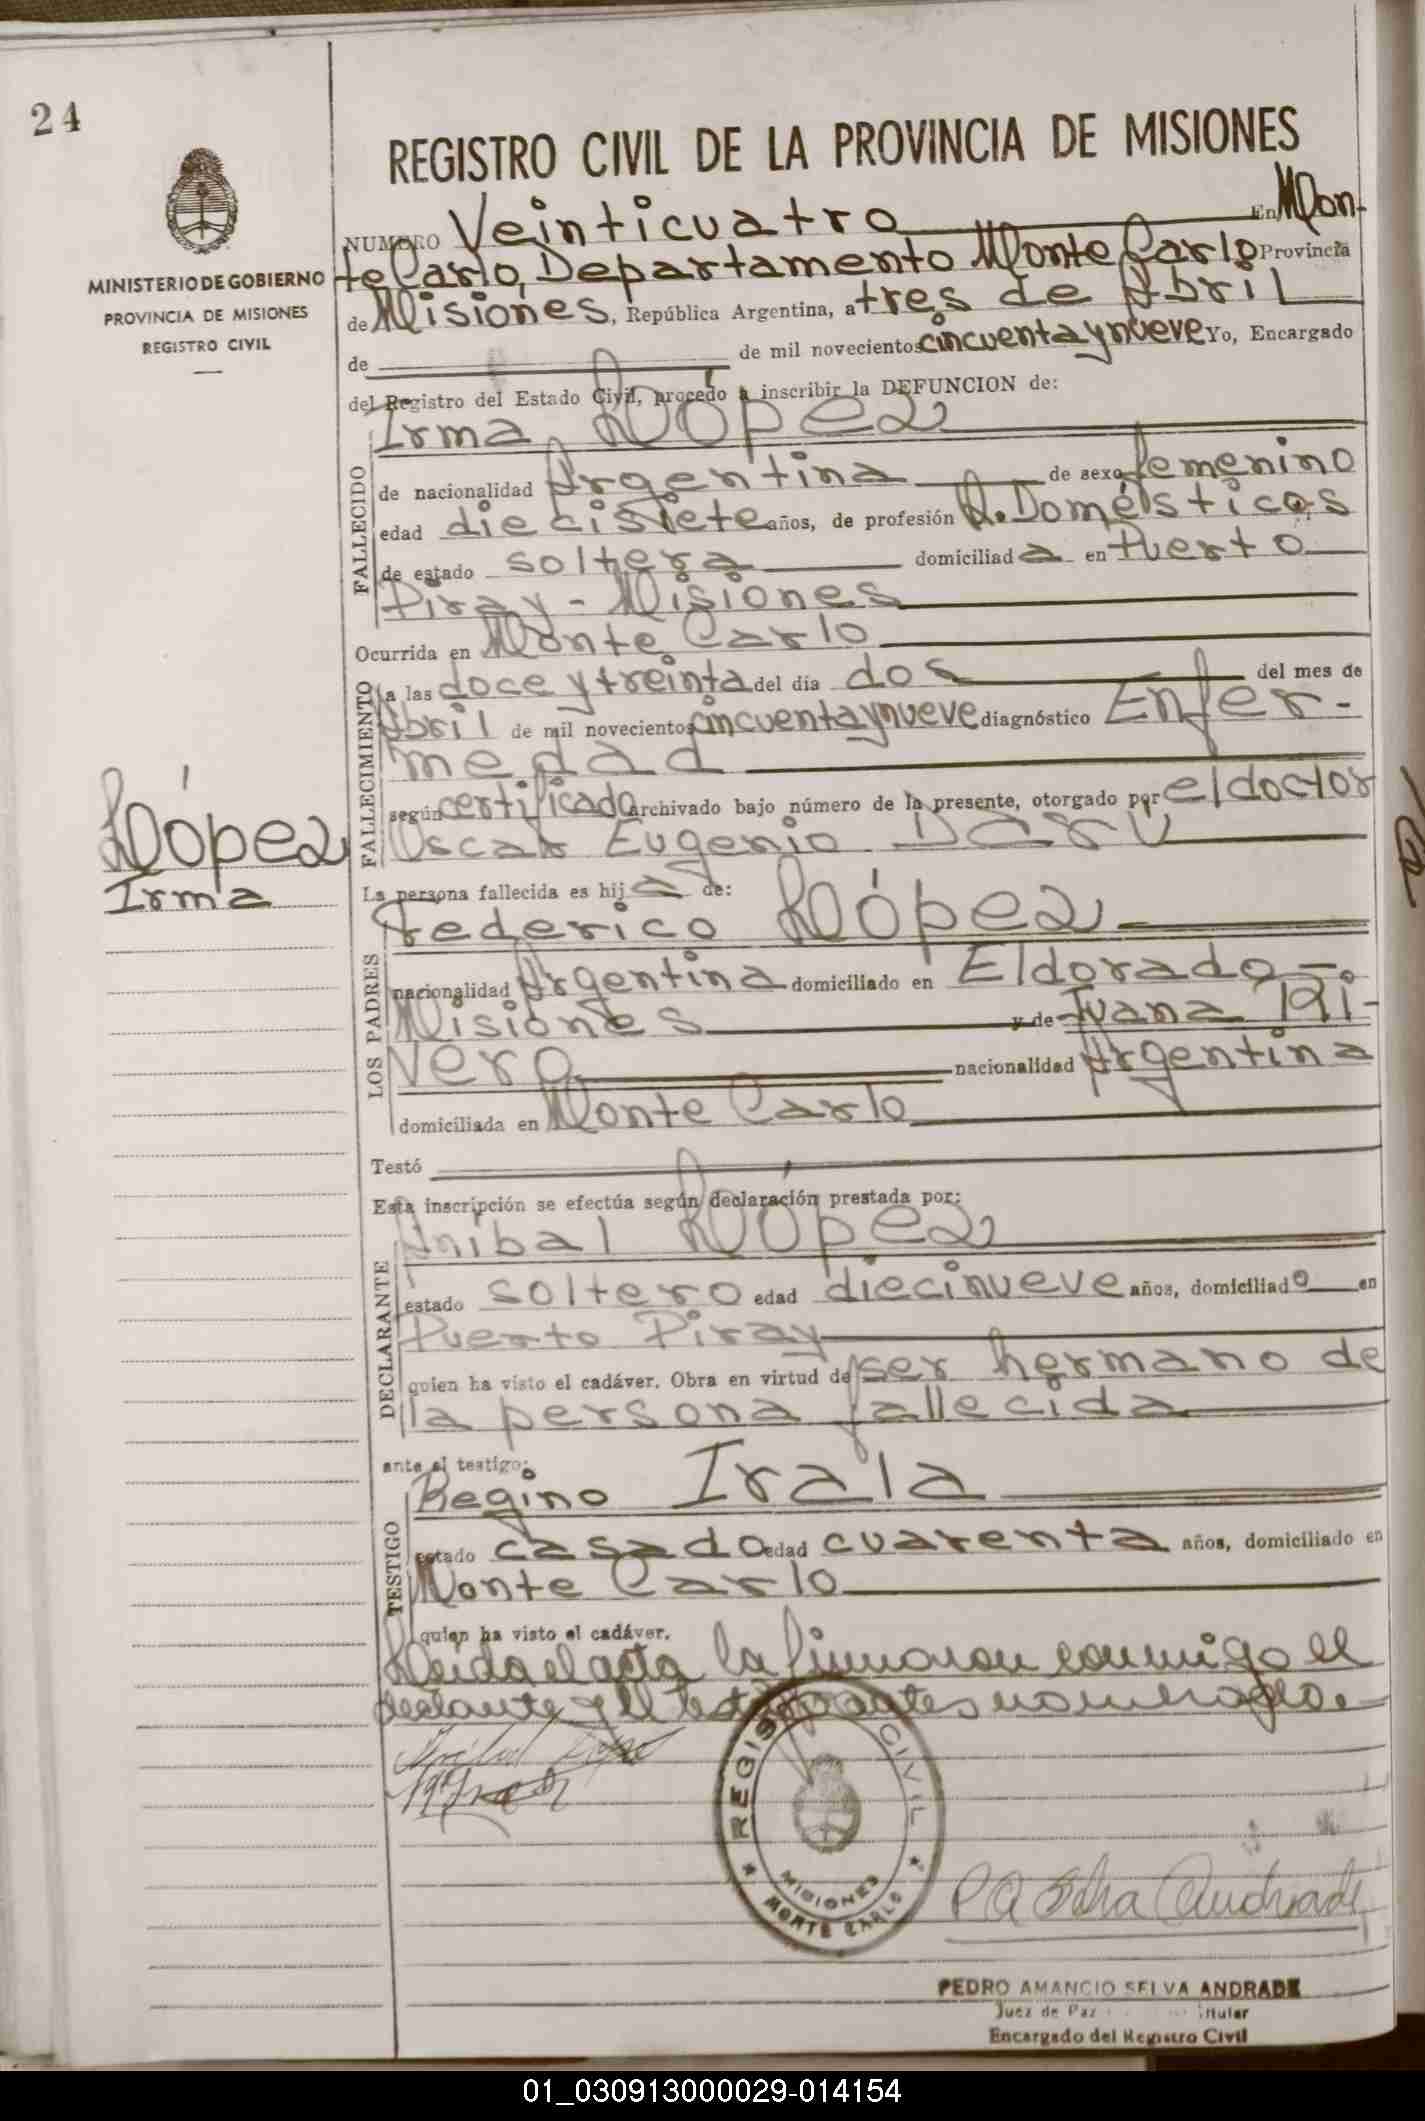 24
MINISTERIO DE GOBIERNO
PROVINCIA DE MISIONES
REGISTRO CIVIL
REGISTRO CIVIL DE LA PROVINCIA DE MISIONES
NUMERO Veinticuatro En Mon-
te Carlo, Departamento Monte Carlo Provincia
de Misiones, República Argentina, a tres de Abril
de de mil novecientos cincuenta y nueve Yo, Encargado
del Registro del Estado Civil, procedo a inscribir la DEFUNCION de:
Irma López
FALLECIDO
de nacionalidad Argentina de sexo femenino
edad diecisiete años, de profesión Q. Domésticos
de estado soltera domiciliada en Puerto
Piray - Misiones
Ocurrida en Monte Carlo
FALLECIMIENTO
a las doce y treinta del día dos del mes de
Abril de mil novecientos cincuenta y nueve diagnóstico Enfer-
medad
según certificado archivado bajo número de la presente, otorgado por el doctor
Oscar Eugenio DARÚ
López
Irma
La persona fallecida es hija de:
Federico López
LOS PADRES
nacionalidad Argentina domiciliado en Eldorado -
Misiones y de Juana Ri-
vero nacionalidad Argentina
domiciliada en Monte Carlo
Testó
Esta inscripción se efectúa según declaración prestada por:
Aníbal López
DECLARANTE
estado soltero edad diecinueve años, domiciliado en
Puerto Piray
quien ha visto el cadáver. Obra en virtud de ser hermano de
la persona fallecida
ante el testigo:
Regino Irala
TESTIGO
estado casado edad cuarenta años, domiciliado en
Monte Carlo
quien ha visto el cadáver.
Leida el acta la firmaron conmigo el
declante y el testigo antes nombrado.
Anibal López
REGISTRO CIVIL
MISIONES
MONTE CARLO
P A Selva Andrade
PEDRO AMANCIO SELVA ANDRADE
Juez de Paz Titular
Encargado del Registro Civil
01_030913000029-014154